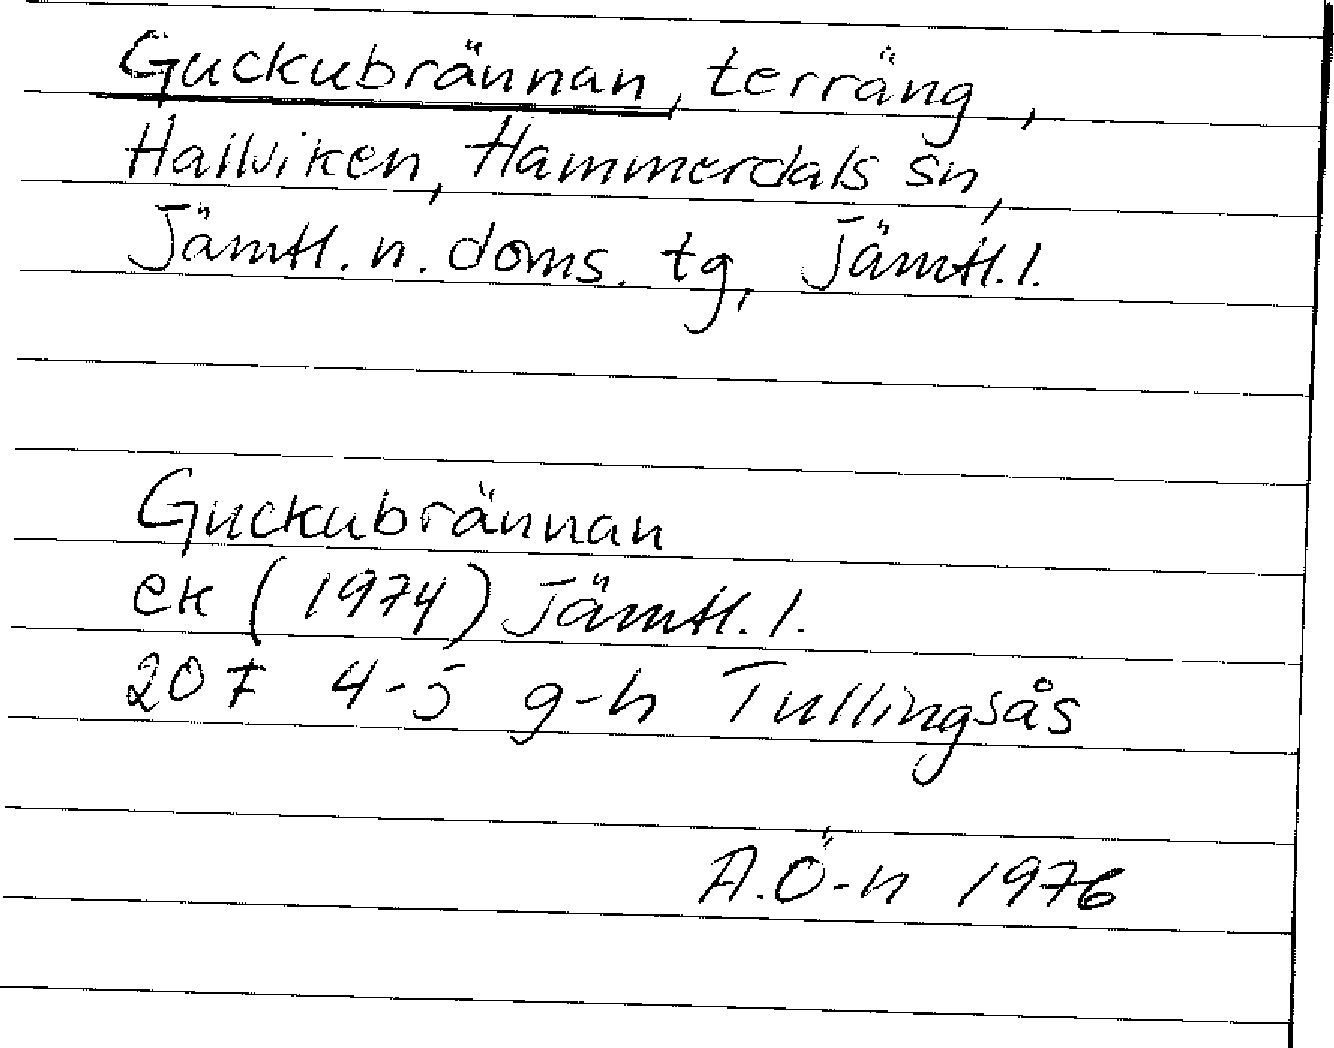 Guckubrännan, terräng,
Hallviken, Hammerdals sn,
Jämtl. n. doms. tg, Jämtl. l.
Guckubrännan
ek (1974) Jämtl. l.
20F 4-5 g-h Tullingsås
A.Ö-n 1976